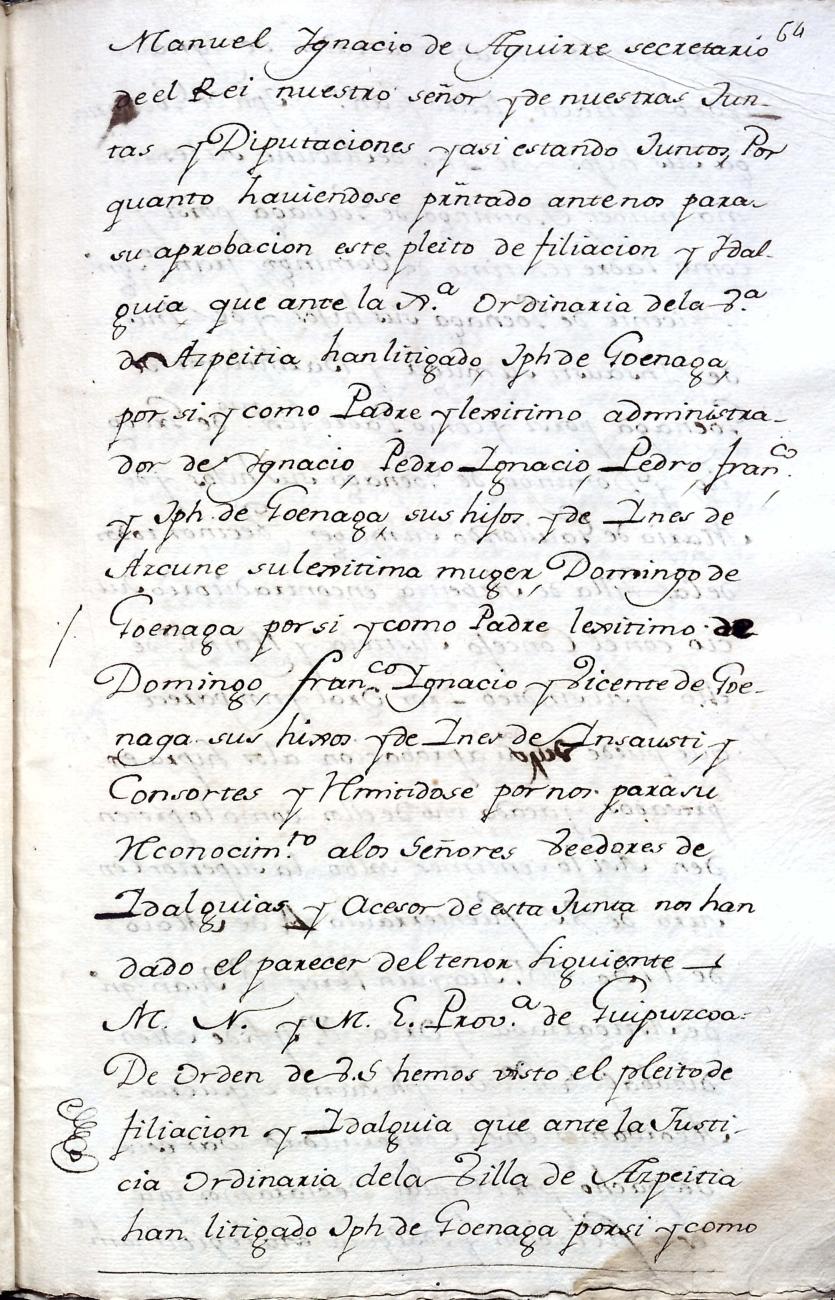 64
Manuel Ignacio de Aguirre secretario
de el Rei nuestro señor y de nuestras Jun-
tas y Diputaciones y asi estando Juntos, Por
quanto haviendose prñtado ante nos para
su aprobacion este pleito de filiacion y Idal-
guia que ante la Jª Ordinaria de la Vª
de Azpeitia han litigado, Jph de Goenaga,
por si, y como Padre y lexitimo administra-
dor de Ignacio, Pedro Ignacio, Pedro, franco.
y Jph de Goenaga, sus hijos y de Ines de
Azcune su lexitima muger, Domingo de
Goenaga por si y como Padre lexitimo de
Domingo, franco Ygnacio y Vicente de Goe-
naga sus hixos y de Ines de Insausti, y
Consortes y Rmitidose por nos para su
Rconocimto a los Señores Veedores de
Idalguias, y Acesor de esta Junta nos han
dado el parecer del tenor siguiente
M. N. y M. L. Prov.ª de Guipuzcoa =
De Orden de V.S hemos visto el pleito de
filiacion y Idalguia que ante la Justi-
cia Ordinaria de la Villa de Azpeitia
han litigado Jph de Goenaga por si y como